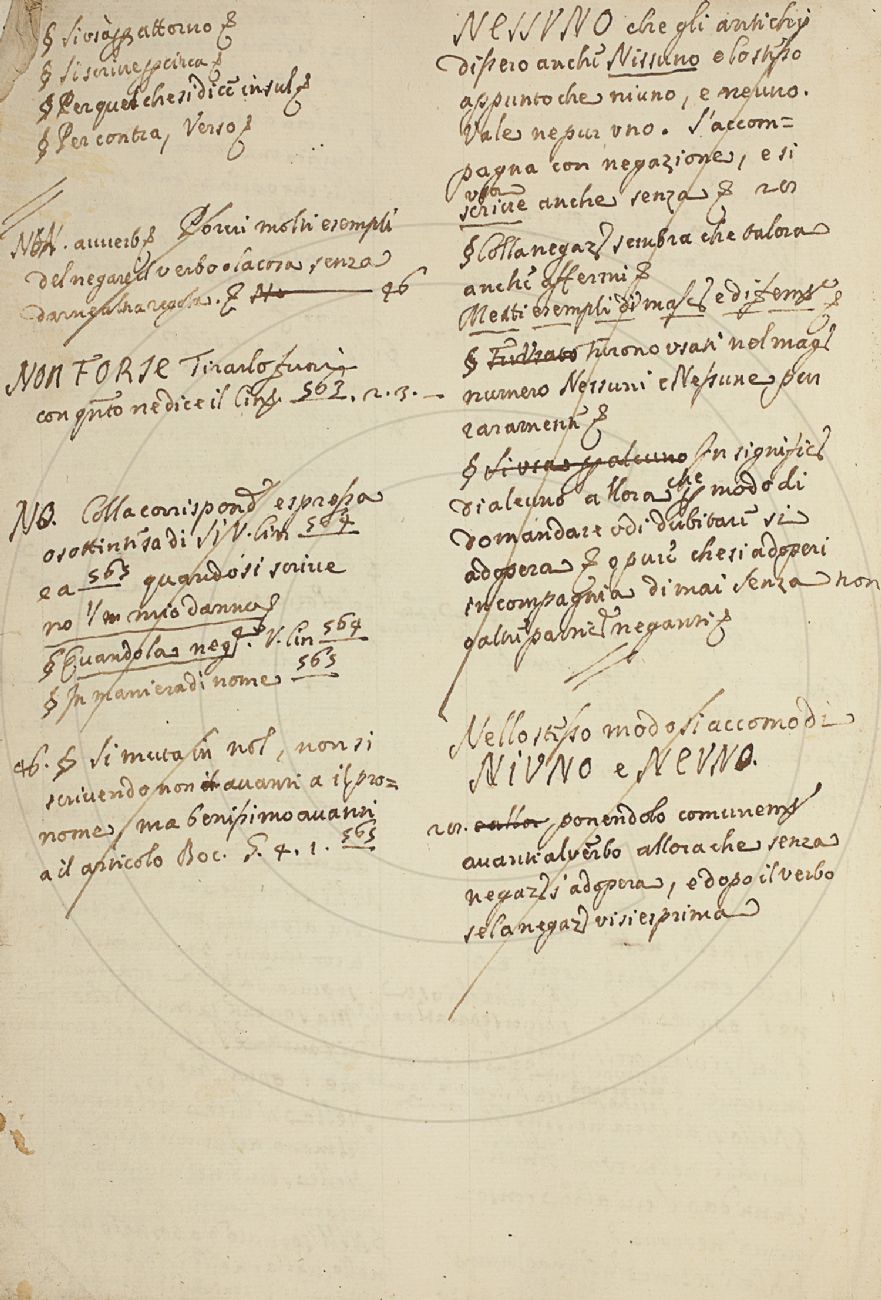 § Si usa p attorno
§ Si scrive p circa
§ Per quel che si dice in sul
§ Per contra, Verso
Non. avverb. Porvi molti esempli
del negare il verbo o la cosa senza
darne altra regola. 46
NON FORSE Tirarlo fuori
con qnto ne dice il Cin. 563. 2. 3.
NO. Colla corrispond espressa
o sottintesa di Si V. Cin 564
e a 565 quando si scrive
no 'l m mio danno
§ Quando la neg. V. Cin 564
§ In maniera di nome 565
46. § Si muta in nol, non si
scrivendo non avanti a il pro=
nome, ma benissimo avanti
a il articolo Boc. G. 4. 1. 565
NESSUNO che gli antichi
dissero anche Nissuno e lo stesso
appunto che niuno, e neuno.
Vale nepur uno. S'accom=
pagna con negazione, e si
usa
scrive anche senza
§ Colla negaz sembra che talora
anche affermi
Metti esempli di masc e di fem
§ Furono usati nel mag
numero Nessuni e Nessune pur
raramente
§ Si usa p alcuno In signific
di alcuno allora che p modo di
domandare o di dubitare si
adopera o pure che si adoperi
in compagnia di mai senza non
o altri partic neganti
Nello stesso modo si accomodi
NIUNO e NEUNO.
ponendolo comunem
avanti al verbo allora che senza
negaz s'adopera, e dopo il verbo
se la negaz vi si esprima